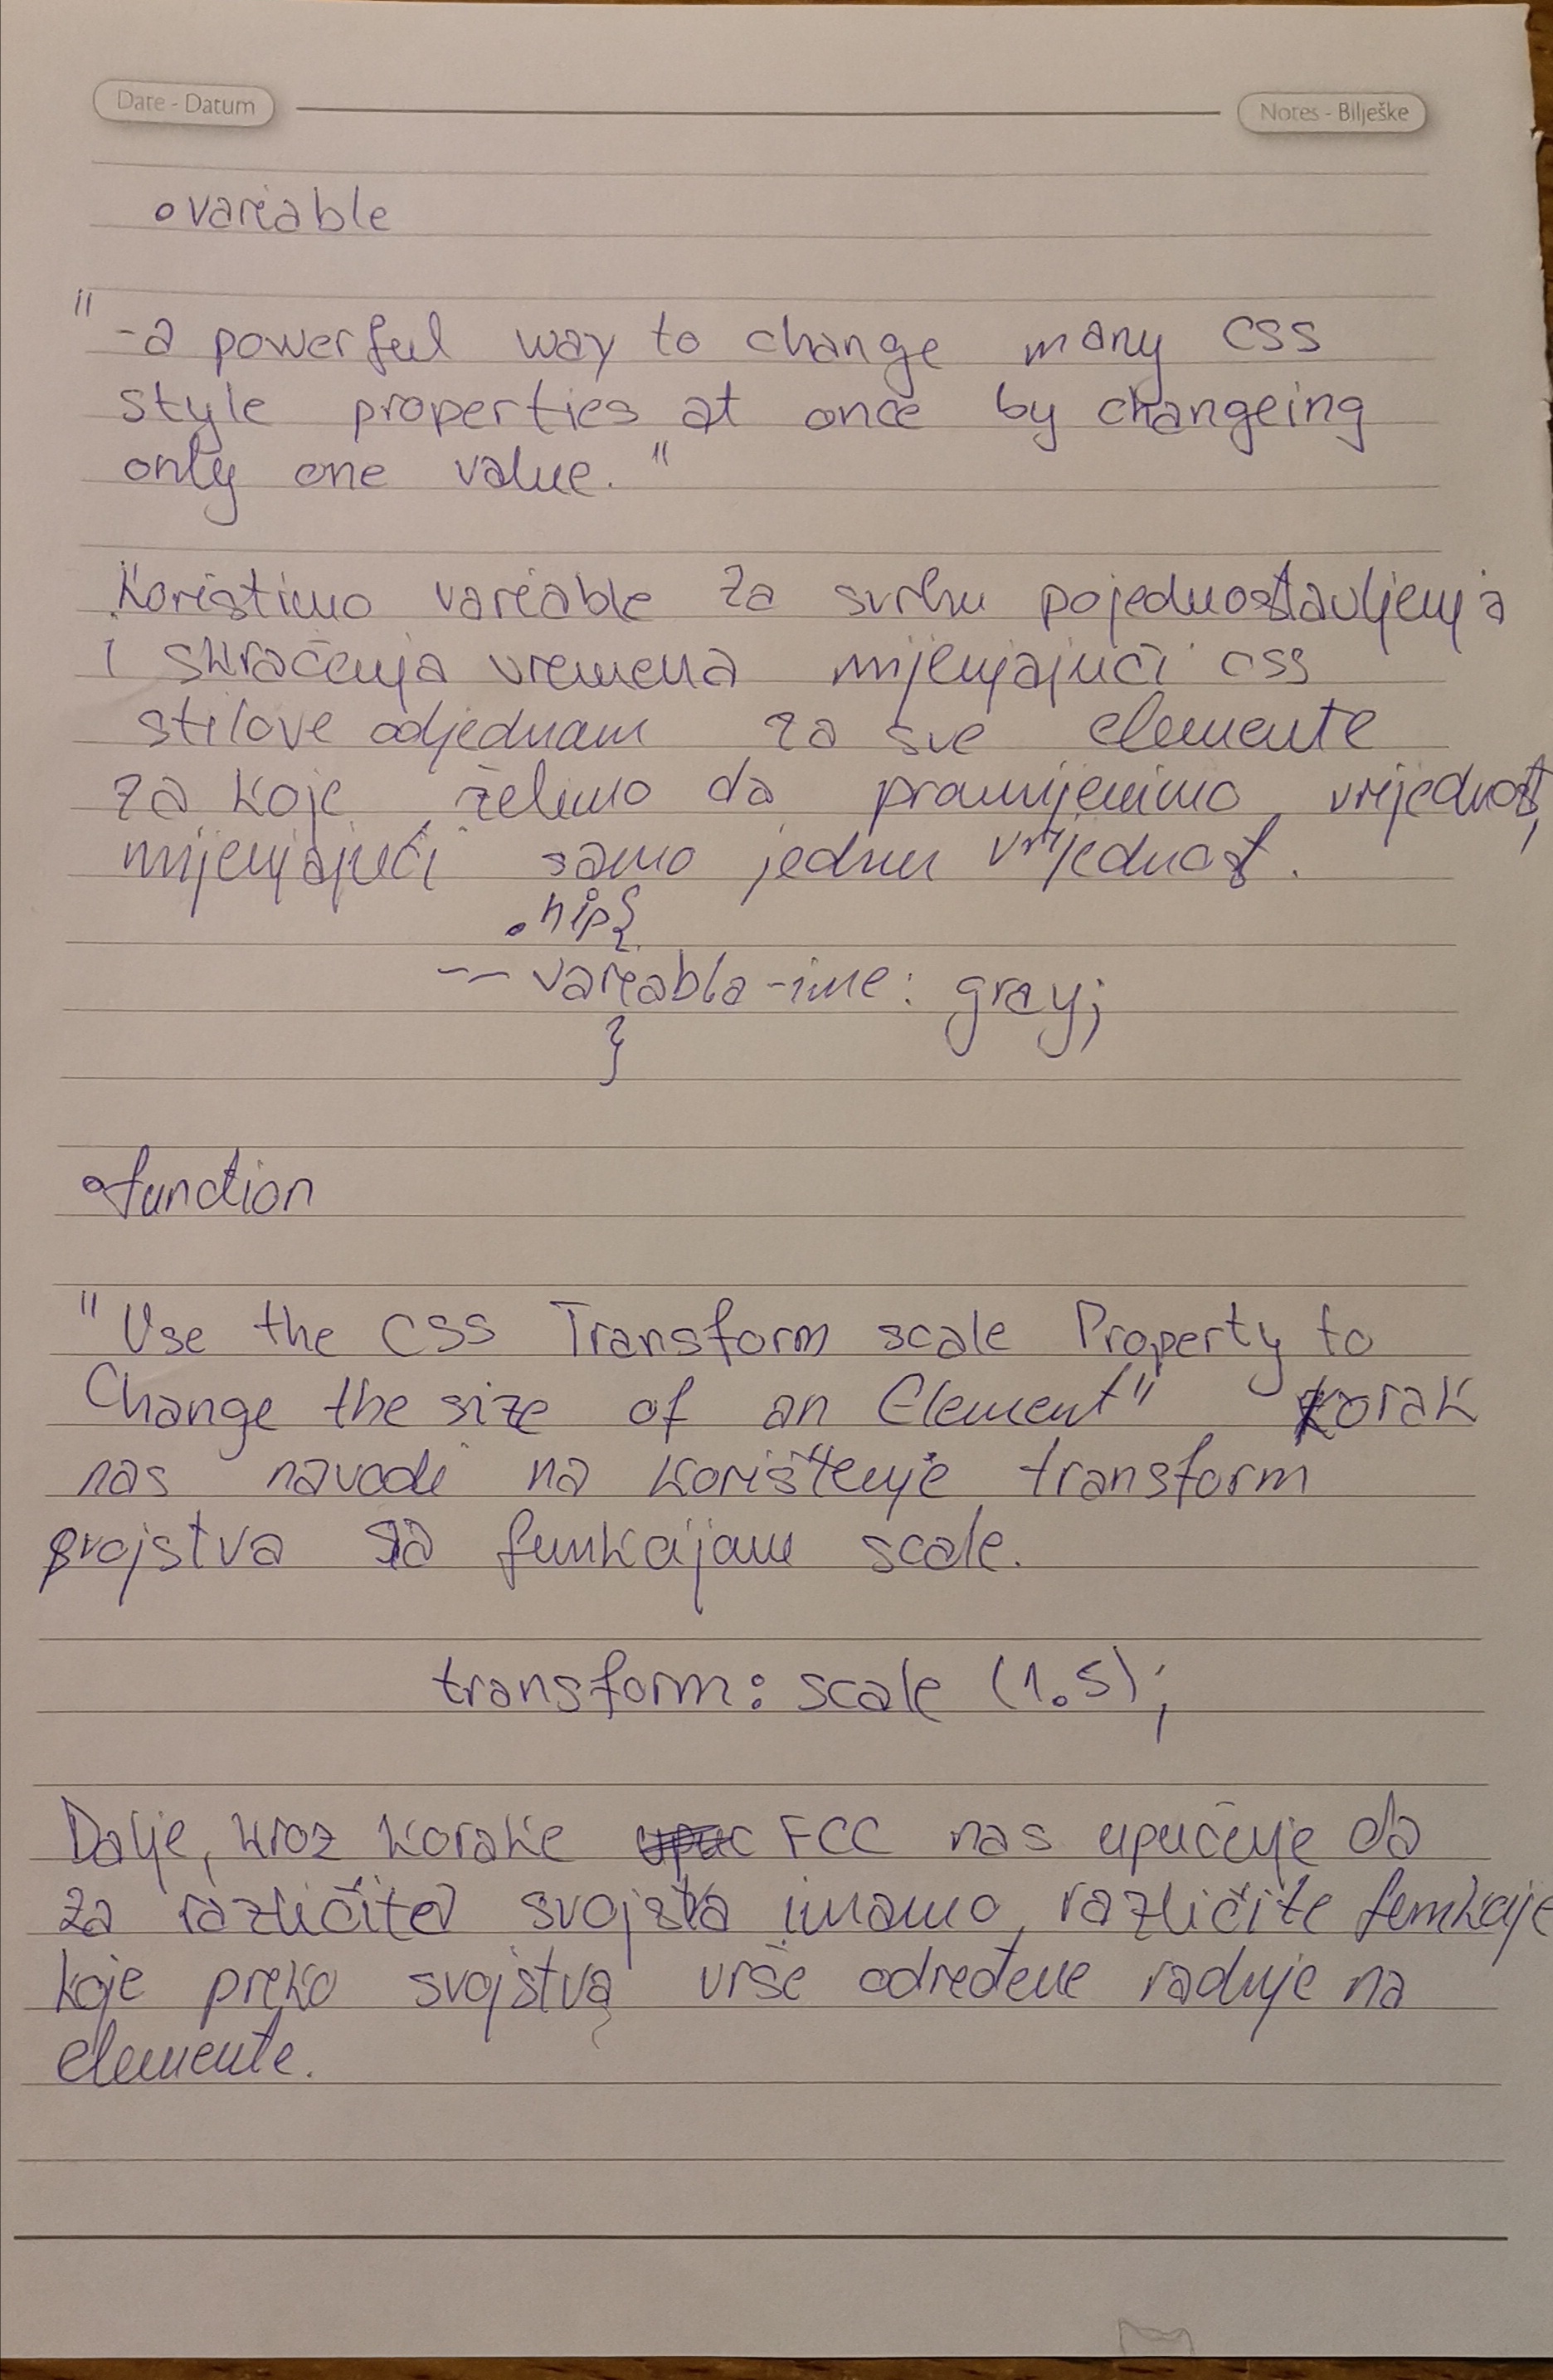 Date - Datum
Notes - Bilješke
• variable
" -a powerful way to change many CSS
style properties at once by changeing
only one value. "
Koristimo variable za svrhu pojednostavljenja
i skraćenja vremena mijenjajući css
stilove odjednam za sve elemente
za koje želimo da promijenimo vrijednost,
mijenjajući samo jednu vrijednost.
.hip{
-- variabla-ime: gray;
}
• function
"Use the CSS Transform scale Property to
Change the size of an Element" korak
nas navodi na korištenje transform
svojstva sa funkcijam scale.
transform: scale (1.5);
Dalje, kroz korake FCC nas upućuje da
za različite svojstva imamo različite funkcije
koje preko svojstva vrše određene radnje na
elemente.